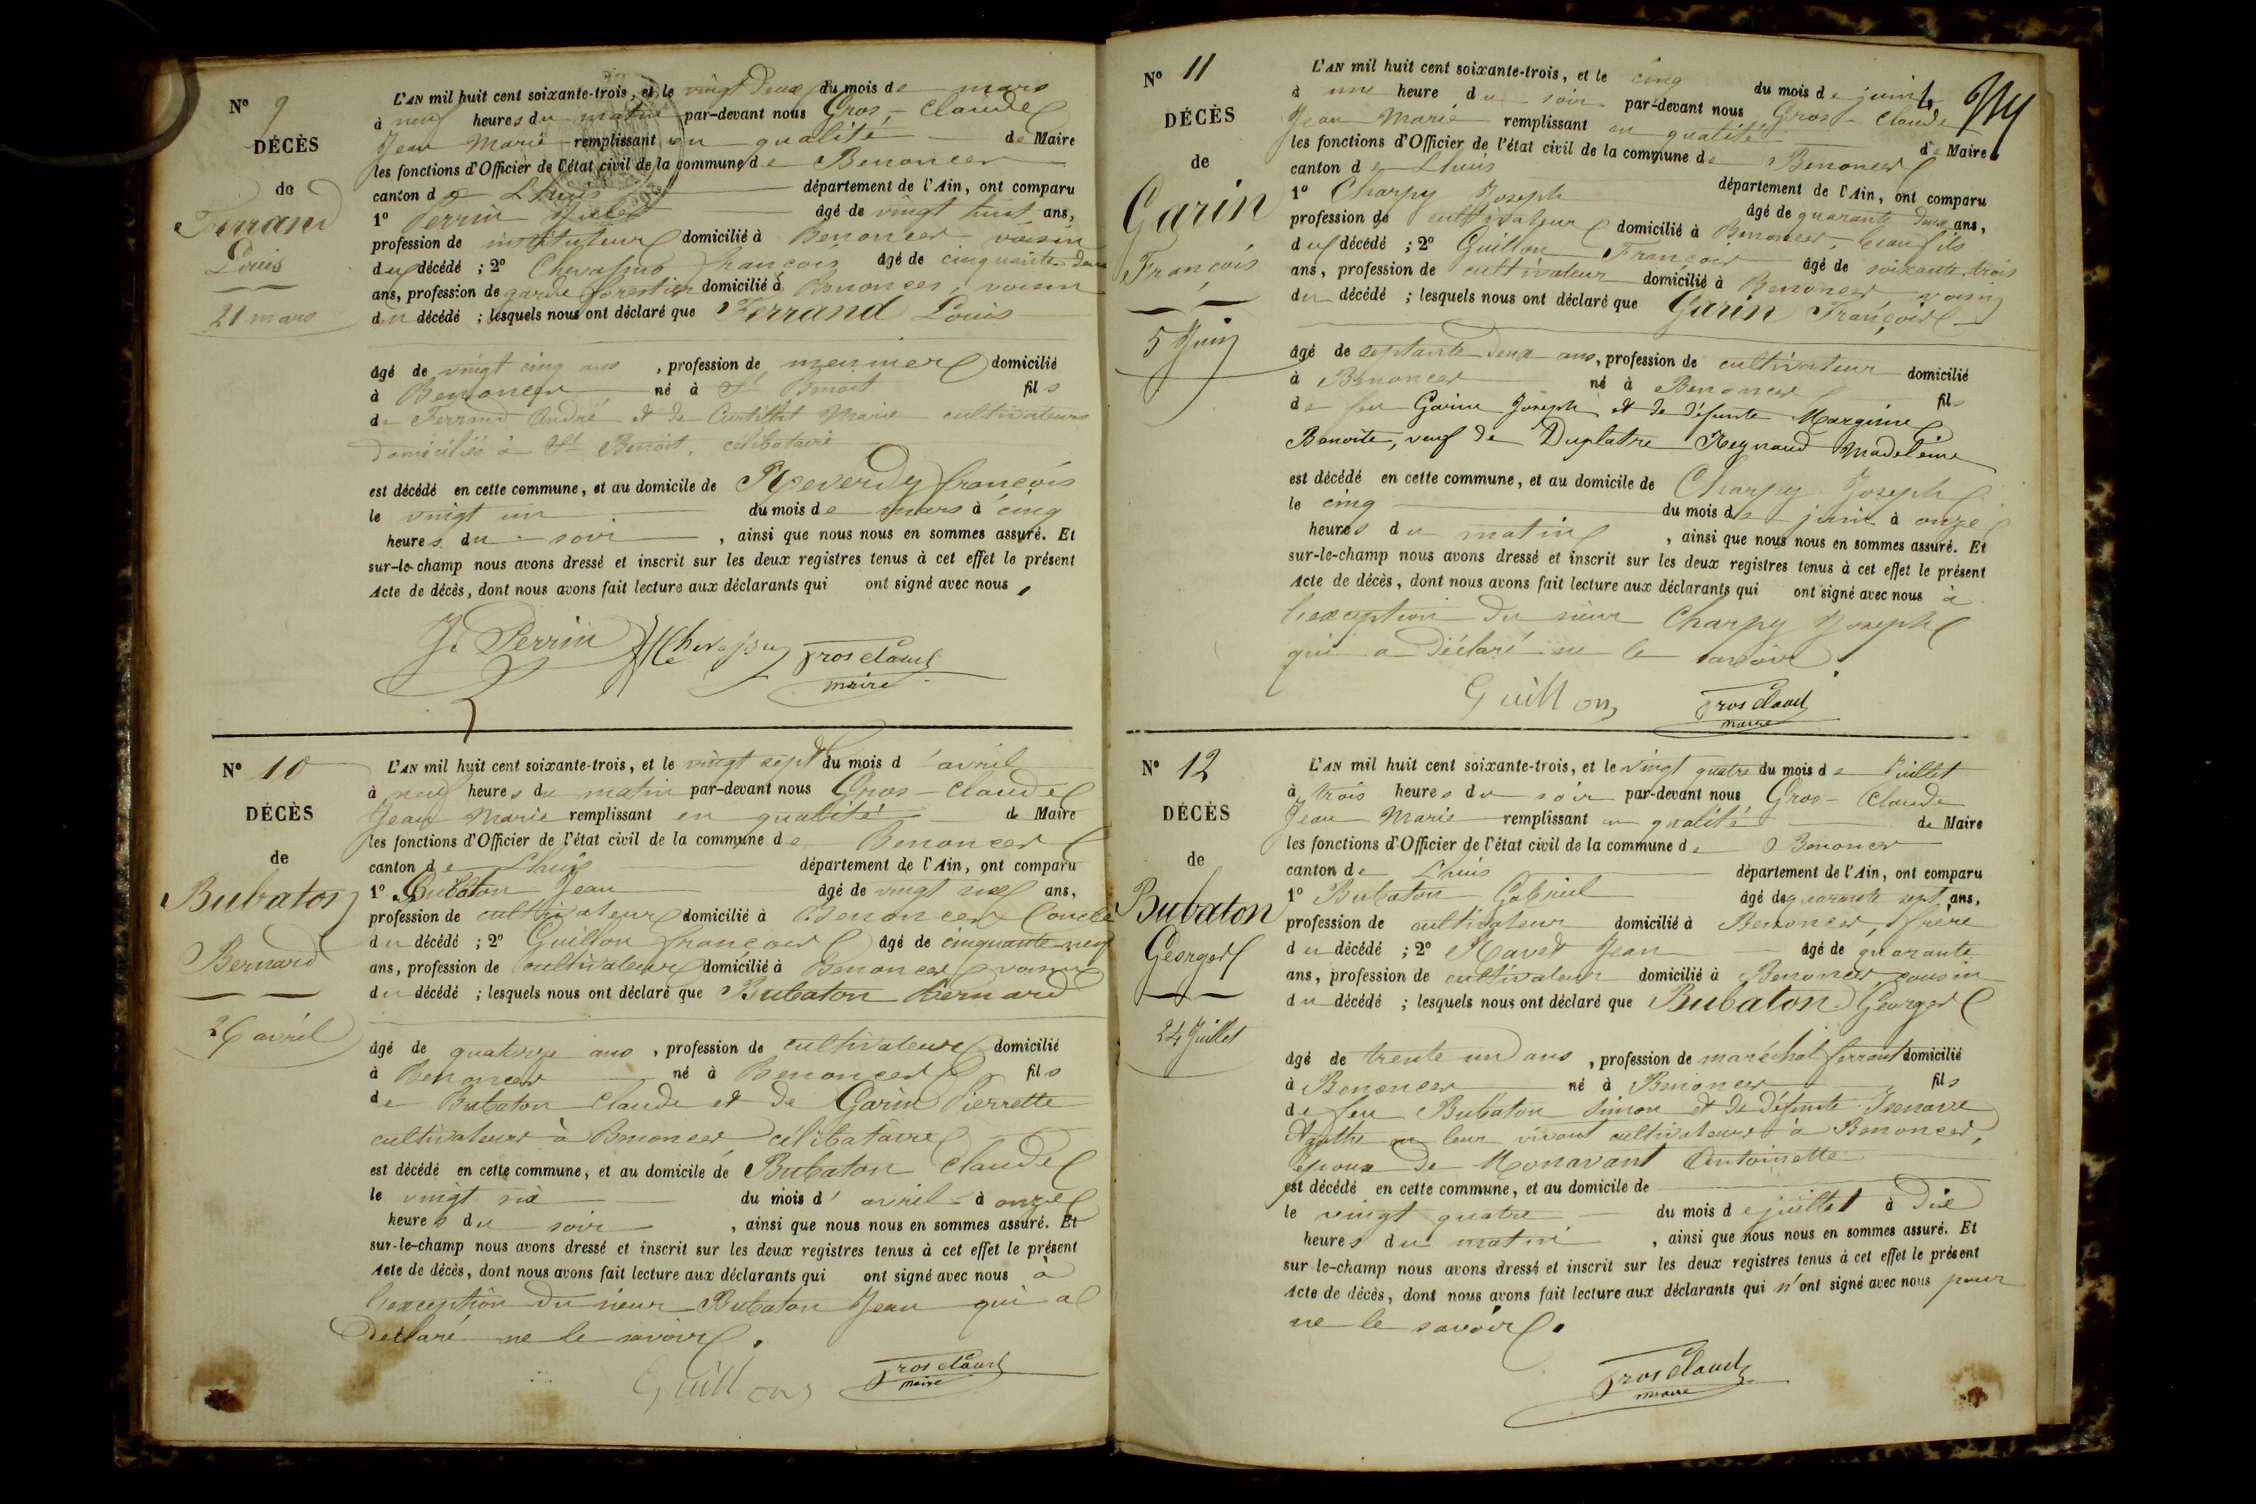 N° 9
DÉCÈS
de
Ferrand
Louis
21 mars
L'AN mil huit cent soixante-trois, et le vingt deux du mois de mars
à neuf heures du matin par-devant nous Gros-Claude
Jean Marie remplissant en qualité de Maire
les fonctions d'Officier de l'état civil de la commune de Benonces
canton de Lhuis département de l'Ain, ont comparu
1° Perrin Jules âgé de vingt huit ans,
profession de instituteur domicilié à Benonces voisin
du décédé ; 2° françois âgé de cinquante deux
ans, profession de garde forestier domicilié à Benonces, voisin
du décédé ; lesquels nous ont déclaré que Ferrand Louis
âgé de vingt cinq ans, profession de meunier domicilié
à Benonces né à St Benoit fils
de Ferrand André et de Curtillat Marie cultivateurs
domiciliés à St Benoit, célibataire
est décédé en cette commune, et au domicile de Reverdy françois
le vingt un du mois de mars à cinq
heures du soir, ainsi que nous nous en sommes assuré. Et
sur-le-champ nous avons dressé et inscrit sur les deux registres tenus à cet effet le présent
Acte de décès, dont nous avons fait lecture aux déclarants qui ont signé avec nous,
J. Perrin Gros Claude
maire
N° 10
DÉCÈS
de
Bubaton
Bernard
26 avril
L'AN mil huit cent soixante-trois, et le vingt sept du mois d'avril
à neuf heures du matin par-devant nous Gros-Claude
Jean Marie remplissant en qualité de Maire
les fonctions d'Officier de l'état civil de la commune de Benonces
canton de Lhuis département de l'Ain, ont comparu
1° Bubaton Jean âgé de vingt ans,
profession de cultivateur domicilié à Benonces l'oncle
du décédé ; 2° Guillon françois âgé de cinquante neuf
ans, profession de cultivateur domicilié à Benonces voisin
du décédé ; lesquels nous ont déclaré que Bubaton Bernard
âgé de quatorze ans, profession de cultivateur domicilié
à Benonces né à Benonces fils
de Bubaton Claude et de Garin Pierrette
cultivateurs à Benonces célibataire
est décédé en cette commune, et au domicile de Bubaton Claude
le vingt six du mois d'avril à onze
heures du soir, ainsi que nous nous en sommes assuré. Et
sur-le-champ nous avons dressé et inscrit sur les deux registres tenus à cet effet le présent
Acte de décès, dont nous avons fait lecture aux déclarants qui ont signé avec nous à
l'exception du sieur Bubaton Jean qui a
déclaré ne le savoir.
Guillon Gros Claude
maire
N° 11
DÉCÈS
de
Garin
François
5 Juin
L'AN mil huit cent soixante-trois, et le cinq du mois de juin
à une heure du soir par-devant nous Gros-Claude
Jean Marie remplissant en qualité de Maire
les fonctions d'Officier de l'état civil de la commune de Benonces
canton de Lhuis département de l'Ain, ont comparu
1° Charpy Joseph âgé de quarante deux ans,
profession de cultivateur domicilié à Benonces, beau fils
du décédé ; 2° Guillon François âgé de soixante trois
ans, profession de cultivateur domicilié à Benonces voisin
du décédé ; lesquels nous ont déclaré que Garin François
âgé de septante deux ans, profession de cultivateur domicilié
à Benonces né à Benonces fils
de feu Garin Joseph et de défunte Marginie
Benoite, veuf de Duplatre Reynaud Madeleine
est décédé en cette commune, et au domicile de Charpy Joseph
le cinq du mois de juin à onze
heures du matin, ainsi que nous nous en sommes assuré. Et
sur-le-champ nous avons dressé et inscrit sur les deux registres tenus à cet effet le présent
Acte de décès, dont nous avons fait lecture aux déclarants qui ont signé avec nous à
l'exception du sieur Charpy Joseph
qui a déclaré ne le savoir.
Guillon Gros Claude
maire
N° 12
DÉCÈS
de
Bubaton
Georges
24 Juillet
L'AN mil huit cent soixante-trois, et le vingt quatre du mois de Juillet
à trois heures du soir par-devant nous Gros-Claude
Jean Marie remplissant en qualité de Maire
les fonctions d'Officier de l'état civil de la commune de Benonces
canton de Lhuis département de l'Ain, ont comparu
1° Bubaton Gabriel âgé de quarante sept ans,
profession de cultivateur domicilié à Benonces, frère
du décédé ; 2° Ravet Jean âgé de quarante
ans, profession de cultivateur domicilié à Benonces, cousin
du décédé ; lesquels nous ont déclaré que Bubaton Georges
âgé de trente un ans, profession de maréchal ferrant domicilié
à Benonces né à Benonces fils
de feu Bubaton Simon et de défunte
Agathe en leur vivant cultivateurs à Benonces,
époux de Monavant Antoinette
est décédé en cette commune, et au domicile de
le vingt quatre du mois de juillet à dix
heures du matin, ainsi que nous nous en sommes assuré. Et
sur-le-champ nous avons dressé et inscrit sur les deux registres tenus à cet effet le présent
Acte de décès, dont nous avons fait lecture aux déclarants qui n'ont signé avec nous pour
ne le savoir.
Gros Claude
maire